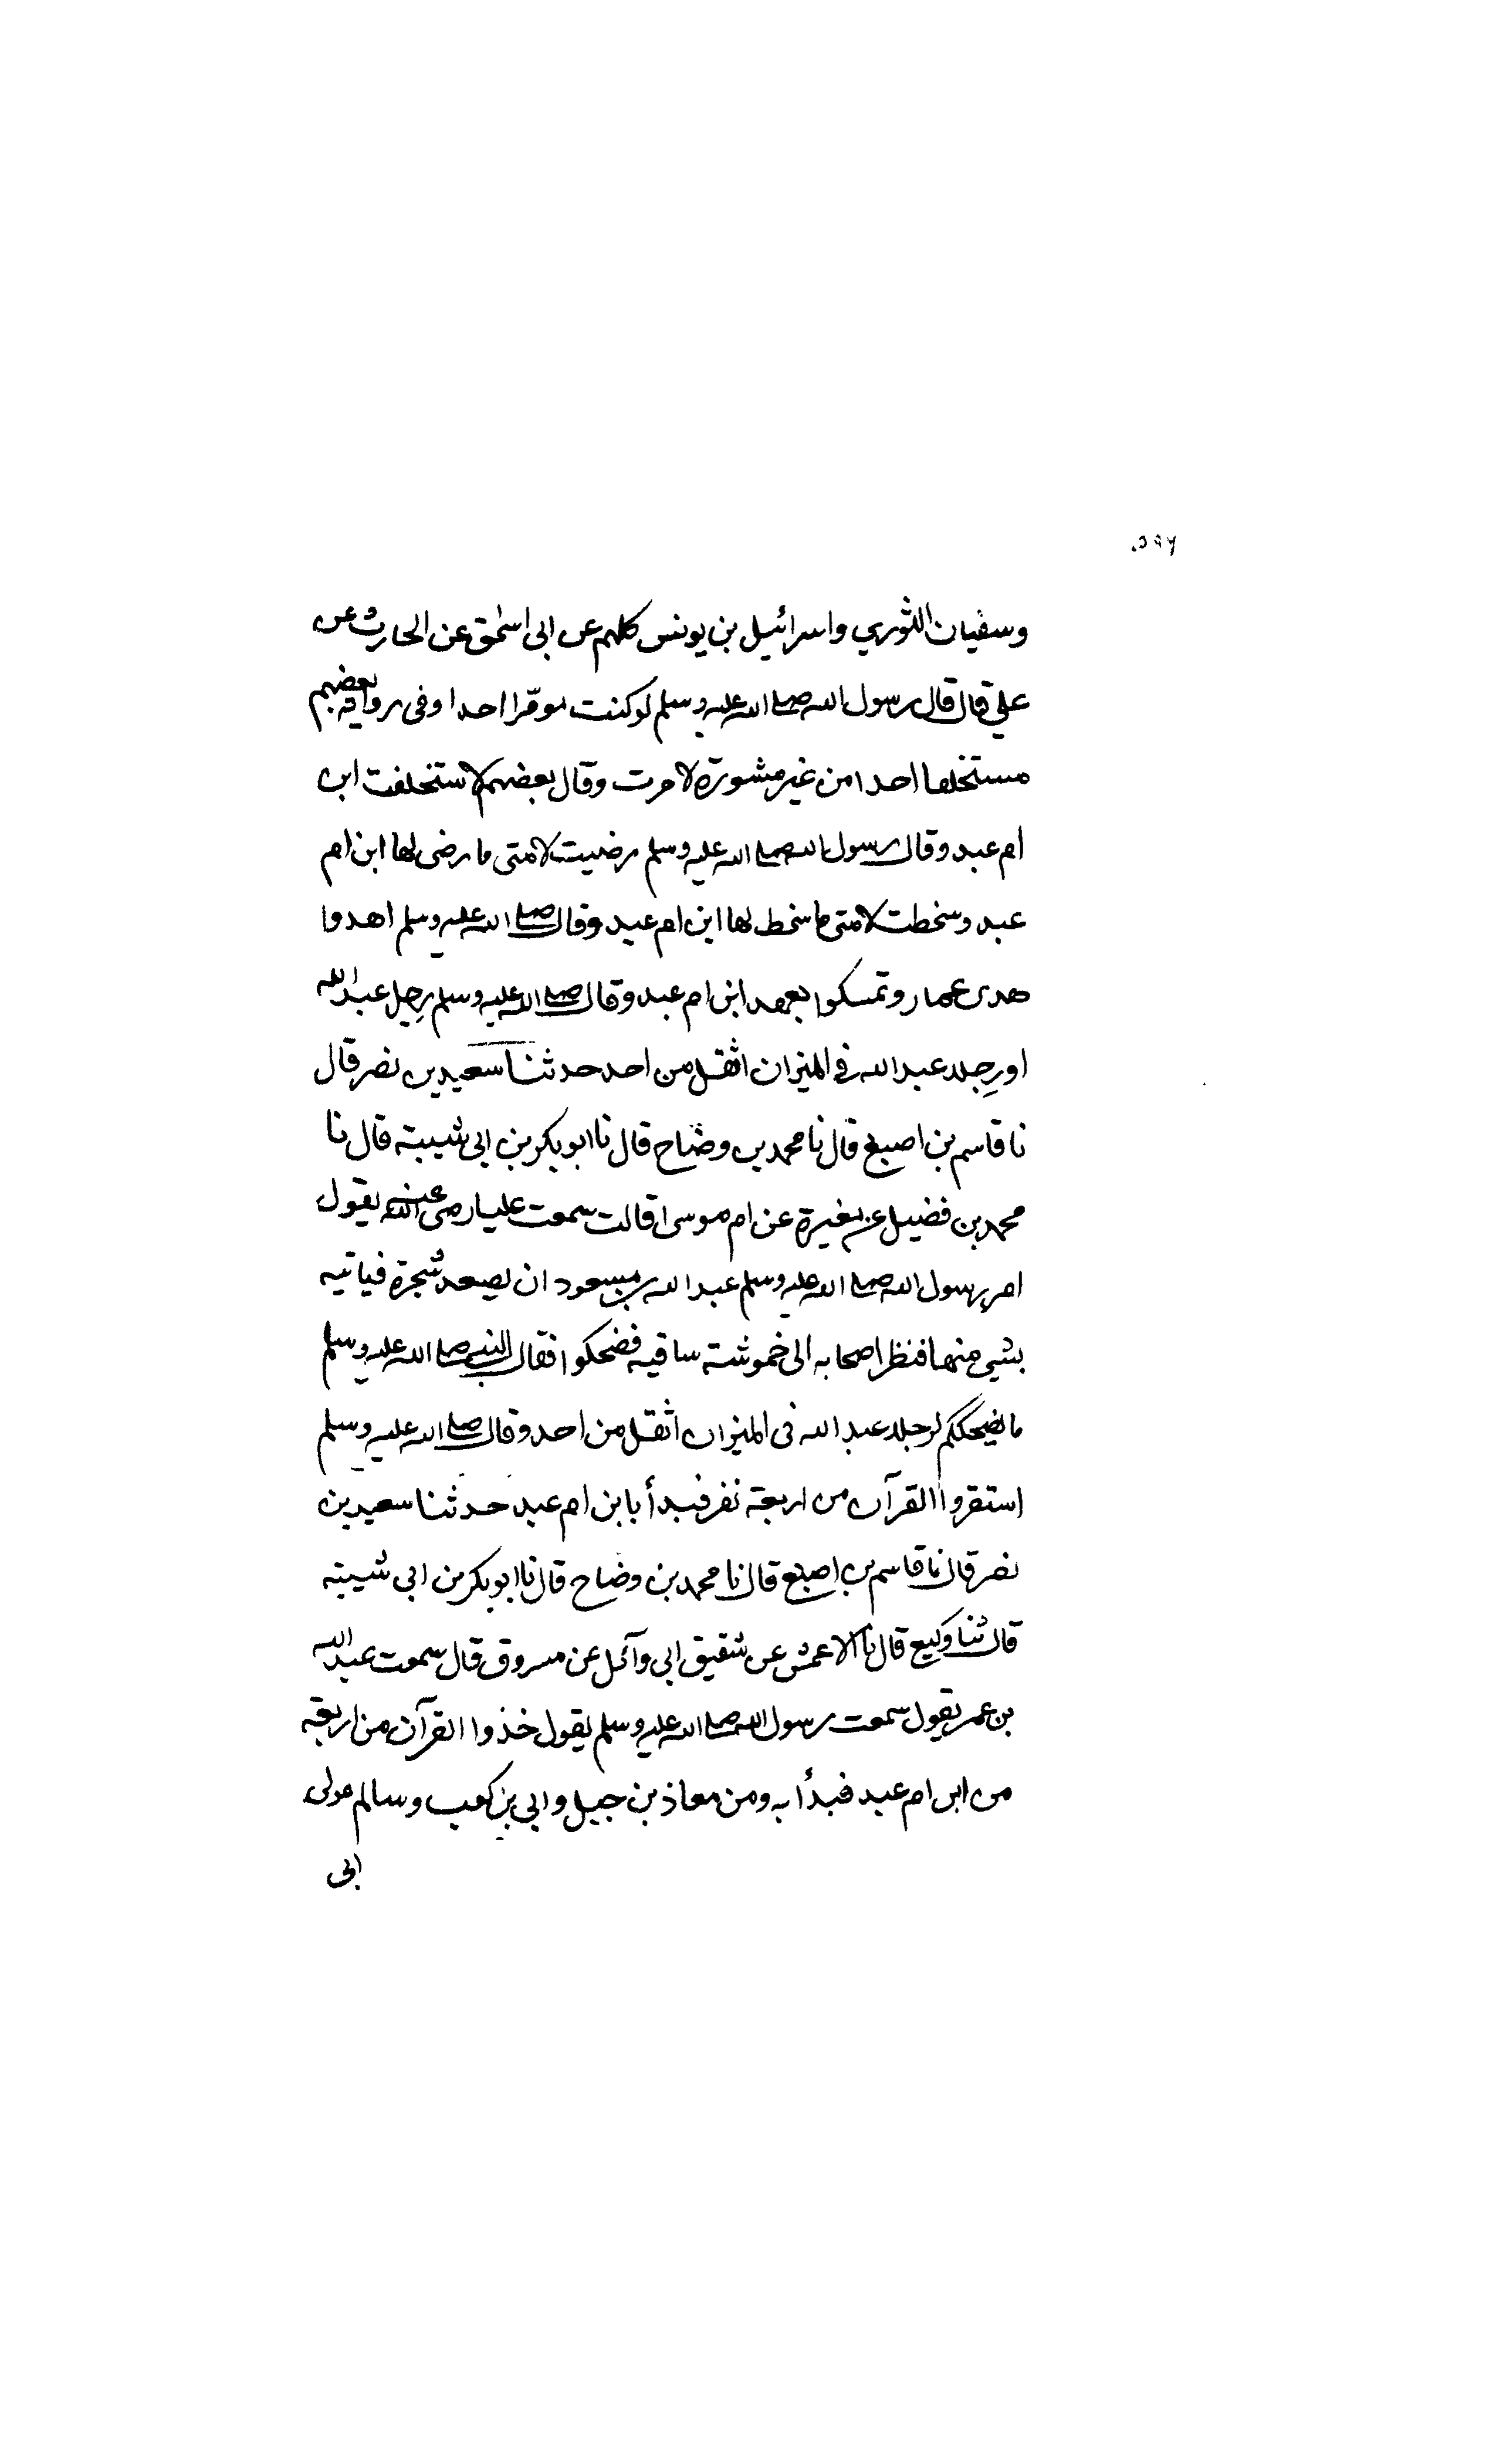 ٥٩٧
وسفيان الثوري واسرائيل بن يونس كلهم عن ابى اسحٰق عن الحارث عن
علي قال قال رسول الله صلى الله عليه وسلم لو كنت مومّرا احدا وفى رواية بعضهم
مستخلفا احدا من غير مشورة لامرت وقال بعضهم لاستخلفت ابن
ام عبد وقال رسول الله صلى الله عليه وسلم رضيت لامتى ما رضى لها ابن ام
عبد وسخطت لامتى ما سخط لها ابن ام عبد وقال صلى الله عليه وسلم اهدوا
هدى عمار وتمسكوا بعهد ابن ام عبد وقال صلى الله عليه وسلم رِجل عبد الله
او رِجلا عبد الله في الميزان اثقل من احد حدثنا سعيد بن نصر قال
نا قاسم بن اصبغ قال نا محمد بن وضاح قال نا ابو بكر بن ابى شيبة قال نا
محمد بن فضيل عن مغيرة عن ام موسى قالت سمعت عليا رضى الله عنه يقول
امر رسول الله صلى الله عليه وسلم عبد الله بن مسعود ان يصعد شجرة فياتيه
بشيى منها فنظر اصحابه الى خموشة ساقيه فضحكوا فقال النبى صلى الله عليه وسلم
ما يضحككم لرجلا عبد الله فى الميزان اثقل من احد وقال صلى الله عليه وسلم
استقروا القرآن من اربعة نفر فبدأ بابن ام عبد حدثنا سعيد بن
نصر قال نا قاسم بن اصبغ قال نا محمد بن وضاح قال نا ابو بكر بن ابى شيبة
قال ثنا وكيع قال نا الاعمش عن شقيق ابى وآئل عن مسروق قال سمعت عبد الله
بن عمر يقول سمعت رسول الله صلى الله عليه وسلم يقول خذوا القرآن من اربعة
من ابن ام عبد فبدأ به ومن معاذ بن جبل وابى بن كعب وسالم مولى
ابى